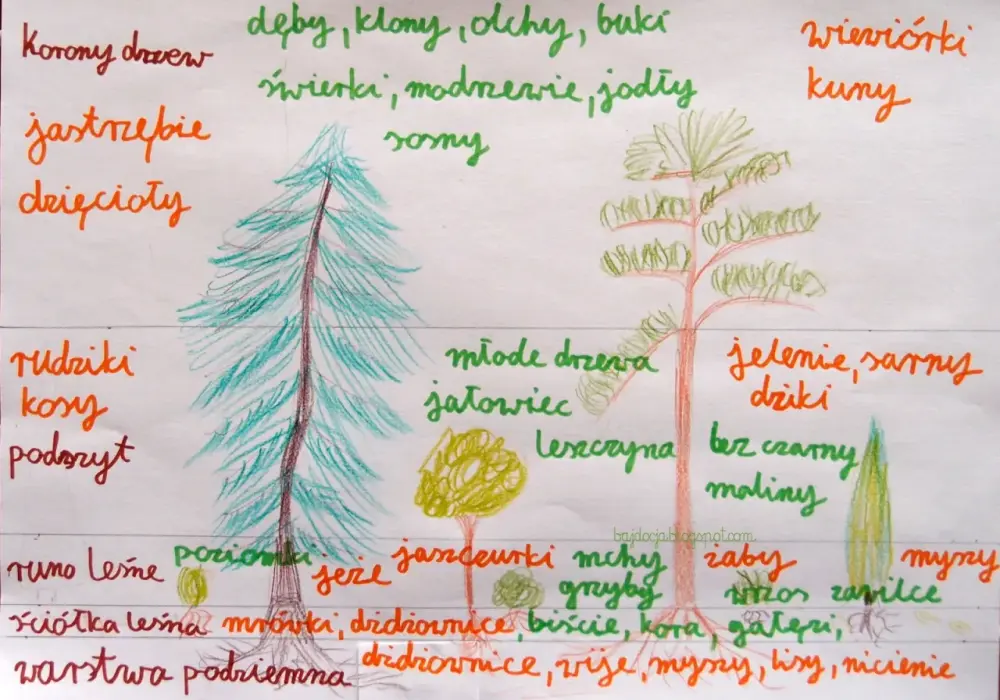 Korony drzew
dęby, klony, olchy, buki
świerki, modrzewie, jodły
sosny
wiewiórki
kuny
jastrzębie
dzięcioły
rudziki
kosy
podszyt
młode drzewa
jałowiec
leszczyna
jelenie, sarny
dziki
bez czarny
maliny
bajdocja.blogspot.com
runo leśne
poziomki
jeże
jaszczurki
mchy
grzyby
żaby
wrzos zawilce
myszy
ściółka leśna mrówki, dżdżownice, liście, kora, gałęzi,
warstwa podziemna dżdżownice, wije, myszy, lisy, nicienie